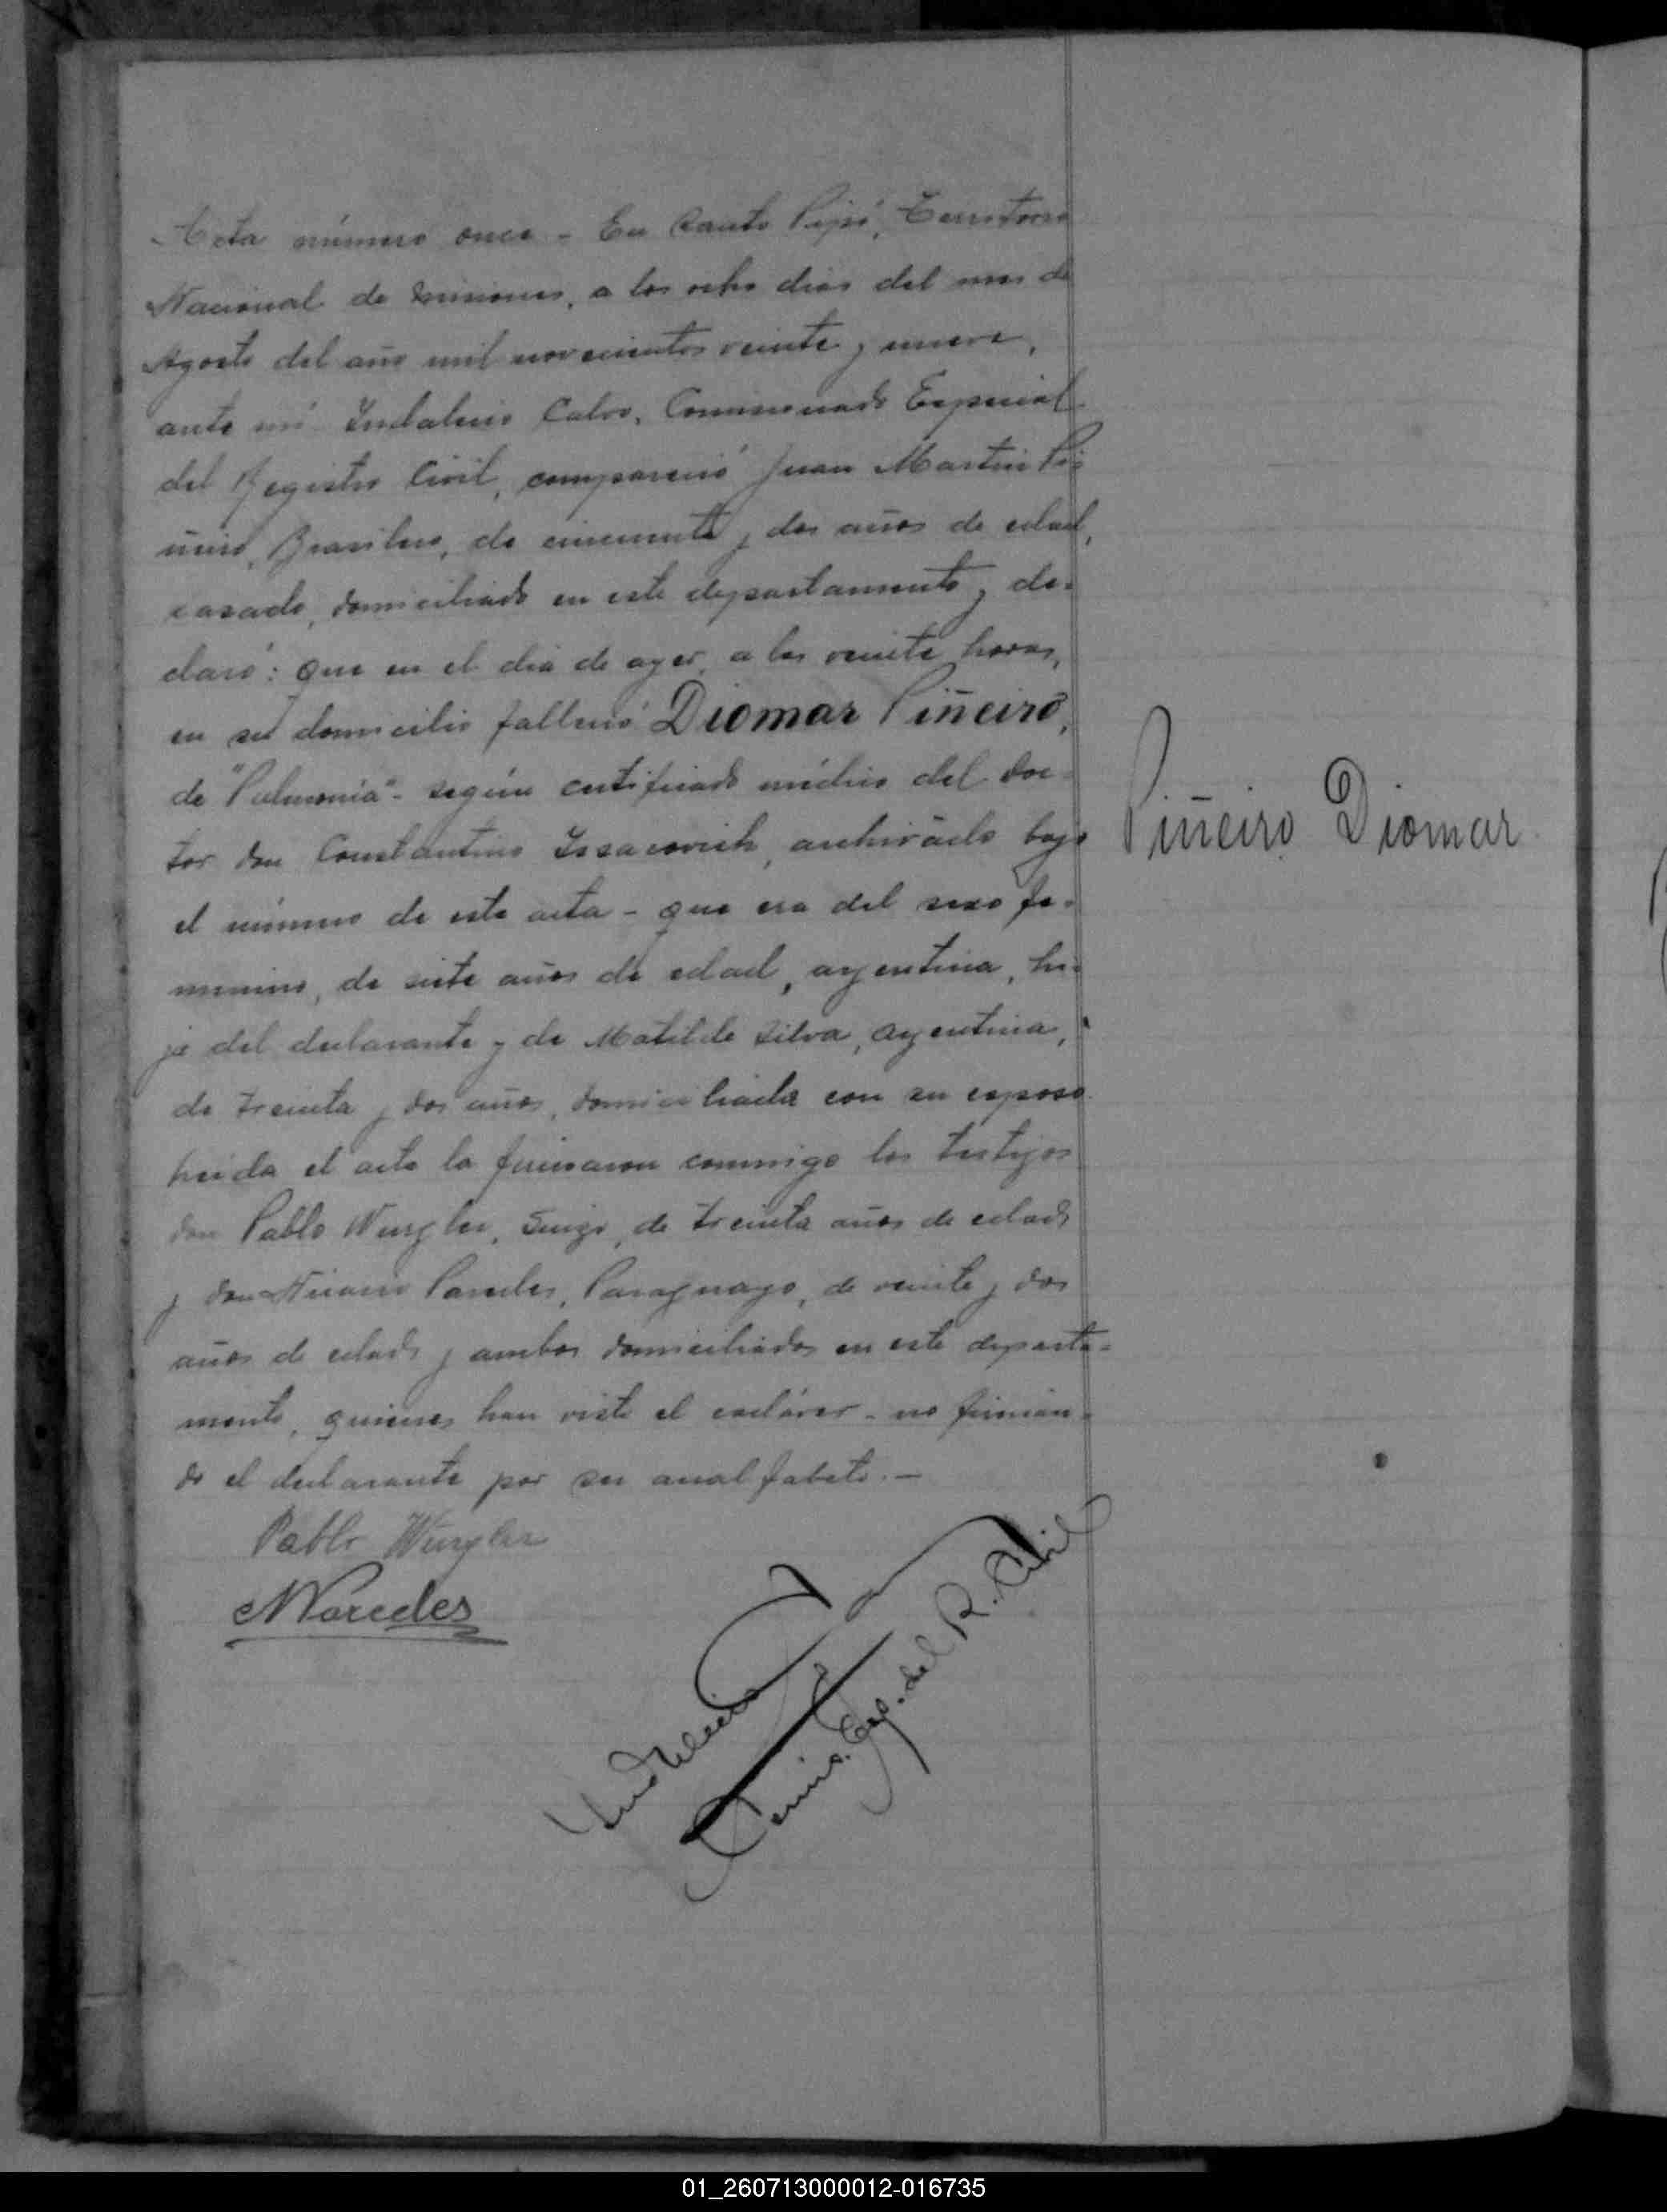 Acta número once - En Santo Pipó, Territorio
Nacional de Misiones, a los ocho dias del mes de
Agosto del año mil novecientos veinte y nueve,
ante mí Indalecio Calvo, Comisionado Especial
del Registro Civil, compareció Juan Martin Pi-
ñeiro, Brasilero, de cincuenta y dos años de edad,
casado, domiciliado en este departamento y de-
claró: que en el dia de ayer, a las veinte horas,
en su domicilio falleció Diomar Piñeiro,
de "Pulmonia" - según certificado médico del doc-
tor don Constantino Issacovich, archivado bajo
el número de este acta - que era del sexo fe-
menino, de siete años de edad, argentina, hi-
ja del declarante y de Matilde Silva, argentina,
de treinta y dos años, domiciliada con su esposo.
Leida el acta la firmaron conmigo los testigos
don Pablo Wurgler, Suizo, de treinta años de edad
y don Nicasio Paredes, Paraguayo, de veinte y dos
años de edad y ambos domiciliados en este departa-
mento, quienes han visto el cadáver - no firman-
do el declarante por ser analfabeto. -
Piñeiro Diomar
Pablo Wurgler
NParedes
Indalecio
Comis. Esp. del R. Civil
01_260713000012-016735